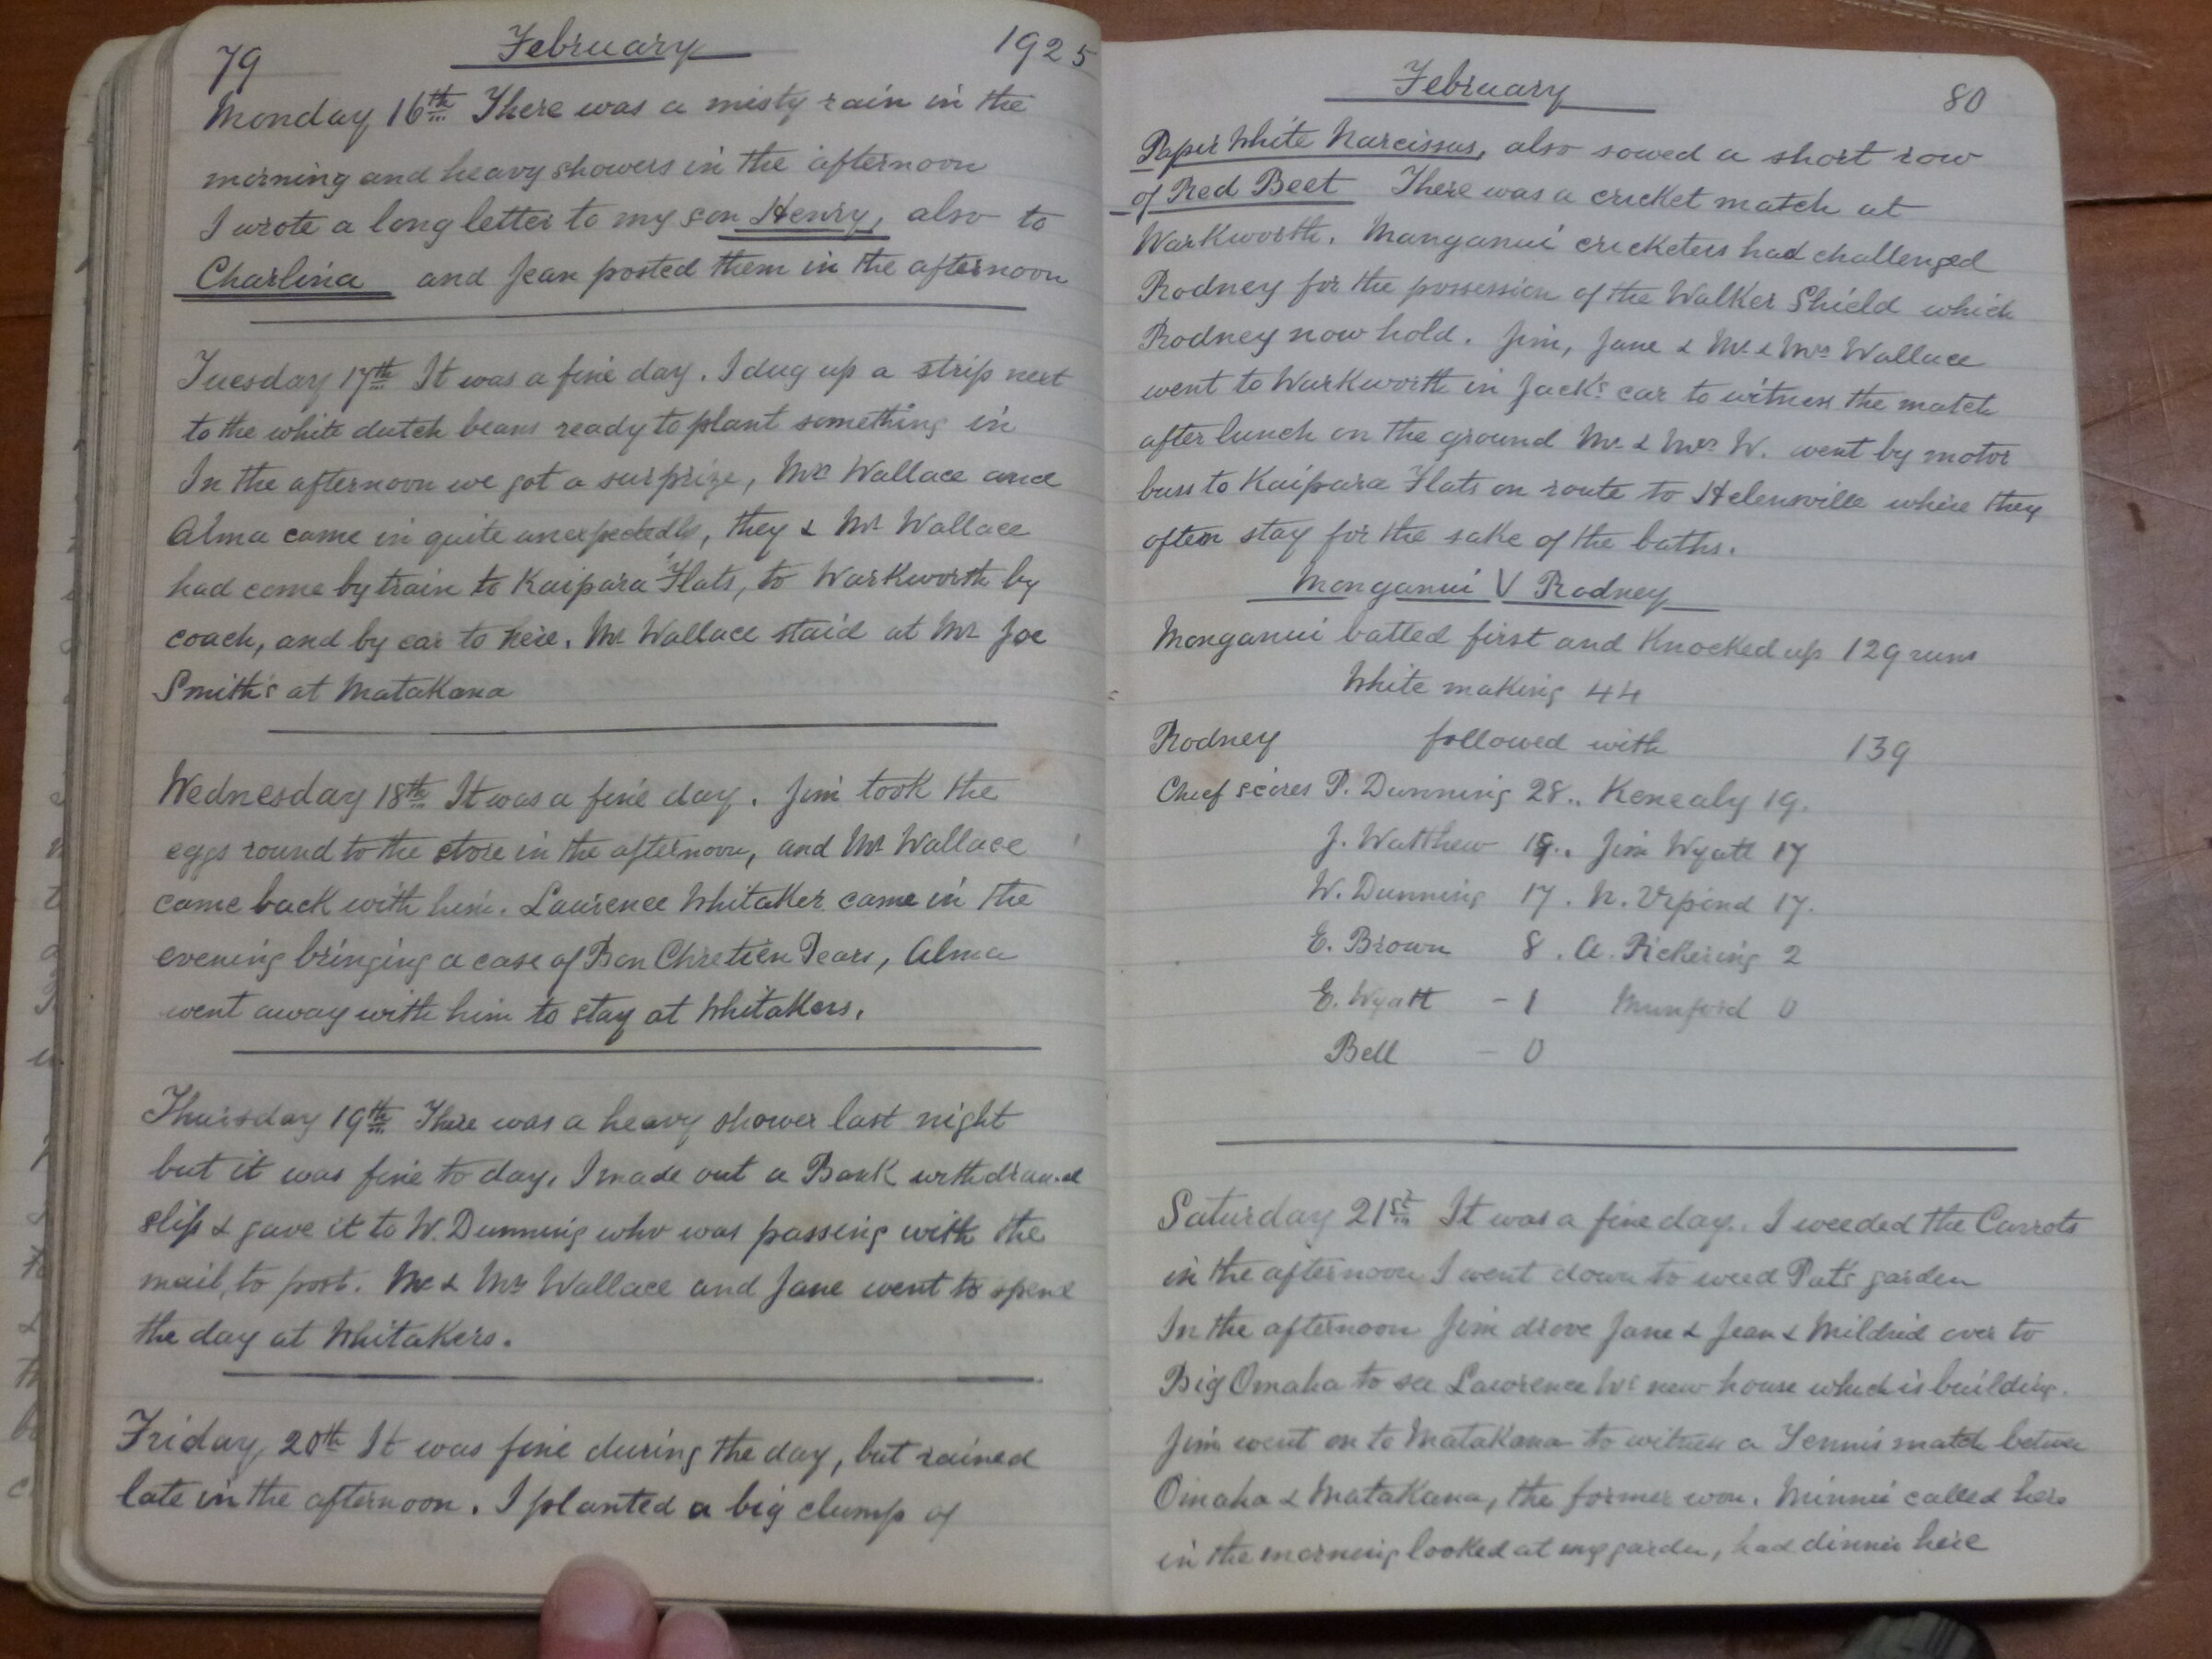 79 February 1925
Monday 16th There was a misty rain in the
morning and heavy showers in the afternoon
I wrote a long letter to my son Henry, also to
Charlina and Jean posted them in the afternoon
Tuesday 17th It was a fine day. I dug up a strip next
to the white dutch beans ready to plant something in
In the afternoon we got a surprize, Mrs Wallace and
Alma came in quite unexpectedly, they & Mr Wallace
had come by train to Kaipara Flats, to Warkworth by
coach, and by car to here. Mr Wallace staid at Mr Joe
Smith's at Matakana
Wednesday 18th It was a fine day. Jim took the
eggs round to the store in the afternoon, and Mr Wallace
came back with him. Laurence Whitaker came in the
evening bringing a case of Bon Chretien Pears, Alma
went away with him to stay at Whitakers.
Thursday 19th There was a heavy shower last night
but it was fine to day. I made out a Bank withdrawal
slip & gave it to W. Dunning who was passing with the
mail, to post. Mr & Mrs Wallace and Jane went to spend
the day at Whitakers.
Friday 20th It was fine during the day, but rained
late in the afternoon. I planted a big clump of
February 80
Paper White Narcissus, also sowed a short row
of Red Beet There was a cricket match at
Warkworth. Manganui cricketers had challenged
Rodney for the possession of the Walker Shield which
Rodney now hold. Jim, Jane & Mr & Mrs Wallace
went to Warkworth in Jack's car to witness the match
after lunch on the ground Mr & Mrs W. went by motor
buss to Kaipara Flats on route to Helensville where they
often stay for the sake of the baths.
Monganui V Rodney
Monganui batted first and Knocked up 129 runs
White making 44
Rodney followed with 139
Chief scores P. Dunning 28.. Kenealy 19.
J. Watthew 18.. Jim Wyatt 17
W. Dunning 17. N. 17.
E. Brown 8. A. Pickering 2
E. Wyatt - 1 Munford 0
Bell - 0
Saturday 21st It was a fine day. I weeded the Carrots
in the afternoon I went down to weed Pat's garden
In the afternoon Jim drove Jane & Jean & Mildred over to
Big Omaha to see Lawrence W's new house which is building.
Jim went on to Matakana to witness a Tennis match between
Omaha & Matakana, the former won. Minnie called here
in the morning looked at my garden, had dinner here